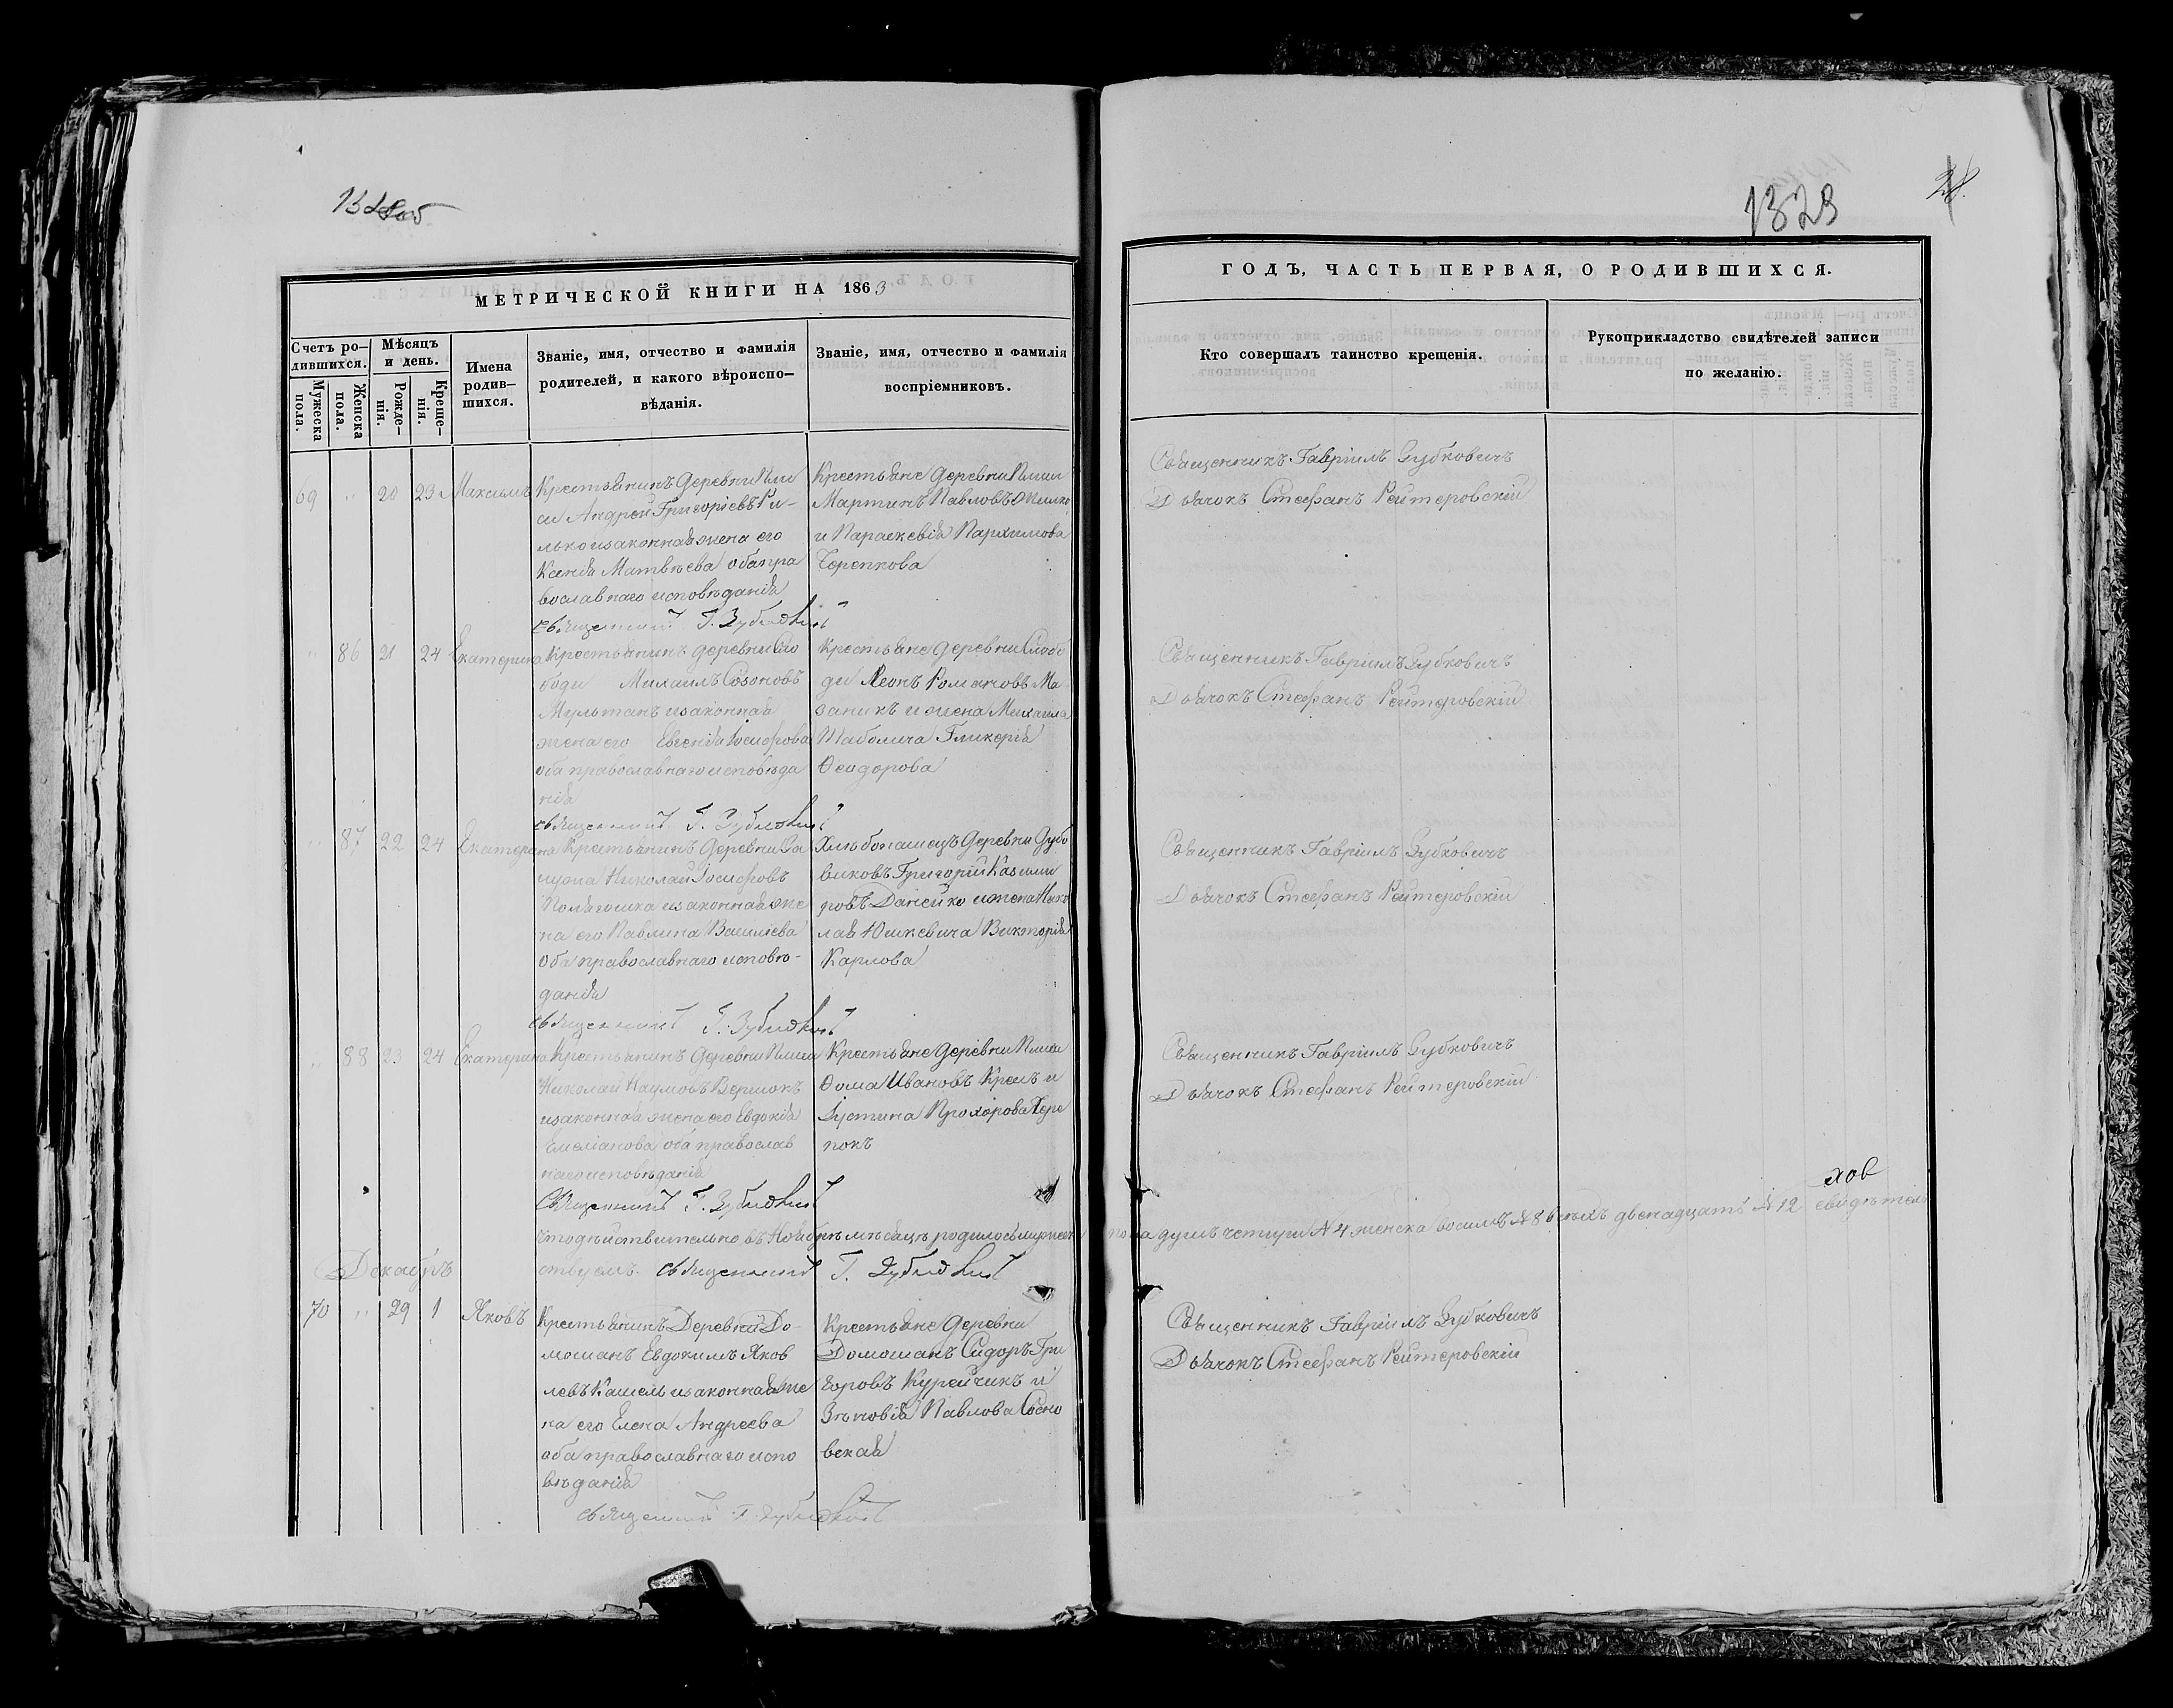 1323
МЕТРИЧЕСКОЙ КНИГИ НА 1863
ГОДЪ, ЧАСТЬ ПЕРВАЯ, О РОДИВШИХСЯ.
Счетъ ро-
дившихся.
Мужеска
пола.
Женска
пола.
Мѣсяцъ
и день.
Рожде-
нія.
Креще-
нія.
Имена
родив-
шихся.
Званіе, имя, отчество и фамилія
родителей, и какого вѣроиспо-
вѣданія.
Званіе, имя, отчество и фамилія
воспріемниковъ.
Кто совершалъ таинство крещенія.
Рукоприкладство свидѣтелей записи
по желанію.
69 " 20 23 Максимъ
Крестьянинъ деревни
Андрей Григоріевъ Ри-
лько и законная жена его
Ксенія Матвѣева оба пра
вославнаго исповѣданія
Священникъ Г. Зубковичъ
Крестьяне деревни
Мартинъ Павловъ
и Параскевія Пархимова
Черепкова
Священникъ Гавріилъ Зубковичъ
Дьячокъ Стефанъ Рейтеровскій
" 86 21 24 Екатерина
Крестьянинъ деревни Сло
боди Михаилъ Созоновъ
Мультанъ и законная
жена его Евгенія Іосифова
оба православнаго исповѣда
нія
Священникъ Г. Зубковичъ
Крестьяне деревни Слобо
ди Леонъ Романовъ Ма
заникъ и жена Михаила
Шаболича Гликерія
Ѳеодорова
Священникъ Гавріилъ Зубковичъ
Дьячокъ Стефанъ Рейтеровскій
" 87 22 24 Екатерина
Крестьянинъ деревни
Николай Іосифовъ
и законная же
на его Павлина Василіева
оба православнаго исповѣ-
данія
Священникъ Г. Зубковичъ
Хлѣбопашецъ деревни Дубо
виковъ Григорій Казими
ровъ Данейко и жена Нико
лая Юшкевича Викторія
Карлова
Священникъ Гавріилъ Зубковичъ
Дьячокъ Стефанъ Рейтеровскій
" 88 23 24 Екатерина
Крестьянинъ деревни
Николай Наумовъ
и законная жена его Евдокія
Емеліанова оба православ
наго исповѣданія
Священникъ Г. Зубковичъ
Крестьяне деревни
Ѳома Ивановъ и
Іустина Прохорова Чере
покъ
Священникъ Гавріилъ Зубковичъ
Дьячокъ Стефанъ Рейтеровскій
Что дѣйствительно въ Ноябрѣ мѣсяцѣ родилось мужеска пола душъ четыри № 4, женска восимъ № 8 двенадцать № 12 свидѣтель
ствуемъ. Священникъ Г. Зубковичъ
Декабрь
70 " 29 1 Яковъ
Крестьянинъ Деревни До-
мошанъ Евдокимъ Яков
левъ Кашель и законная же
на его Елена Андреева
оба православнаго испо
вѣданія
Священникъ Г. Зубковичъ
Крестьяне деревни
Домошанъ Сидоръ Гри
горовъ Курейчикъ и
Зѣновія Павлова Сосно
вская
Священникъ Гавріилъ Зубковичъ
Дьячокъ Стефанъ Рейтеровскій